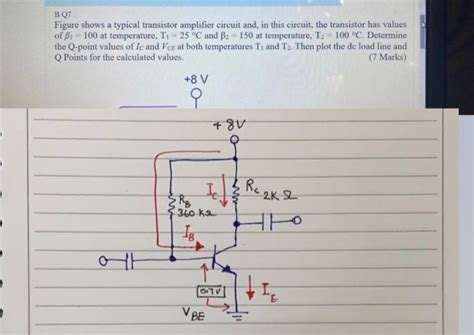 B Q7.
Figure shows a typical transistor amplifier circuit and, in this circuit, the transistor has values
of β₁ = 100 at temperature, T₁ = 25 °C and β₂ = 150 at temperature, T₂ = 100 °C. Determine
the Q-point values of IC and VCE at both temperatures T₁ and T₂. Then plot the dc load line and
Q Points for the calculated values. (7 Marks)
+8 V
+8V
IC
RC 2K Ω
RB
360 KΩ
IB
0.7V
IE
VBE